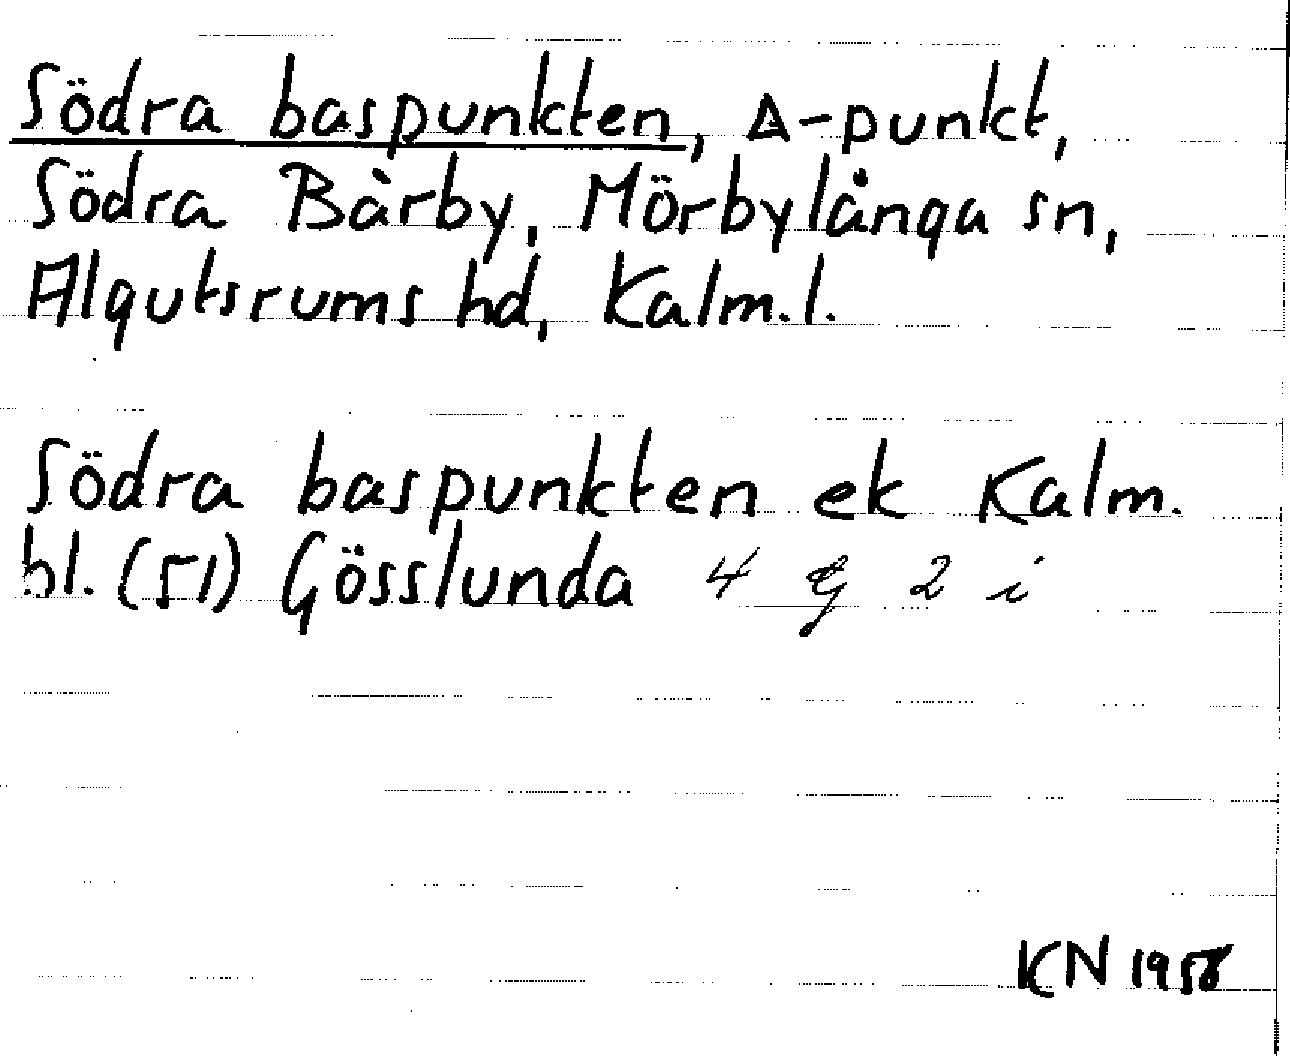 Södra baspunkten, Δ-punkt,
Södra Bårby, Mörbylånga sn,
Algutsrums hd, Kalm.l.
Södra baspunkten ek Kalm.
bl. (51) Gösslunda 4 G 2 i
KN 1958